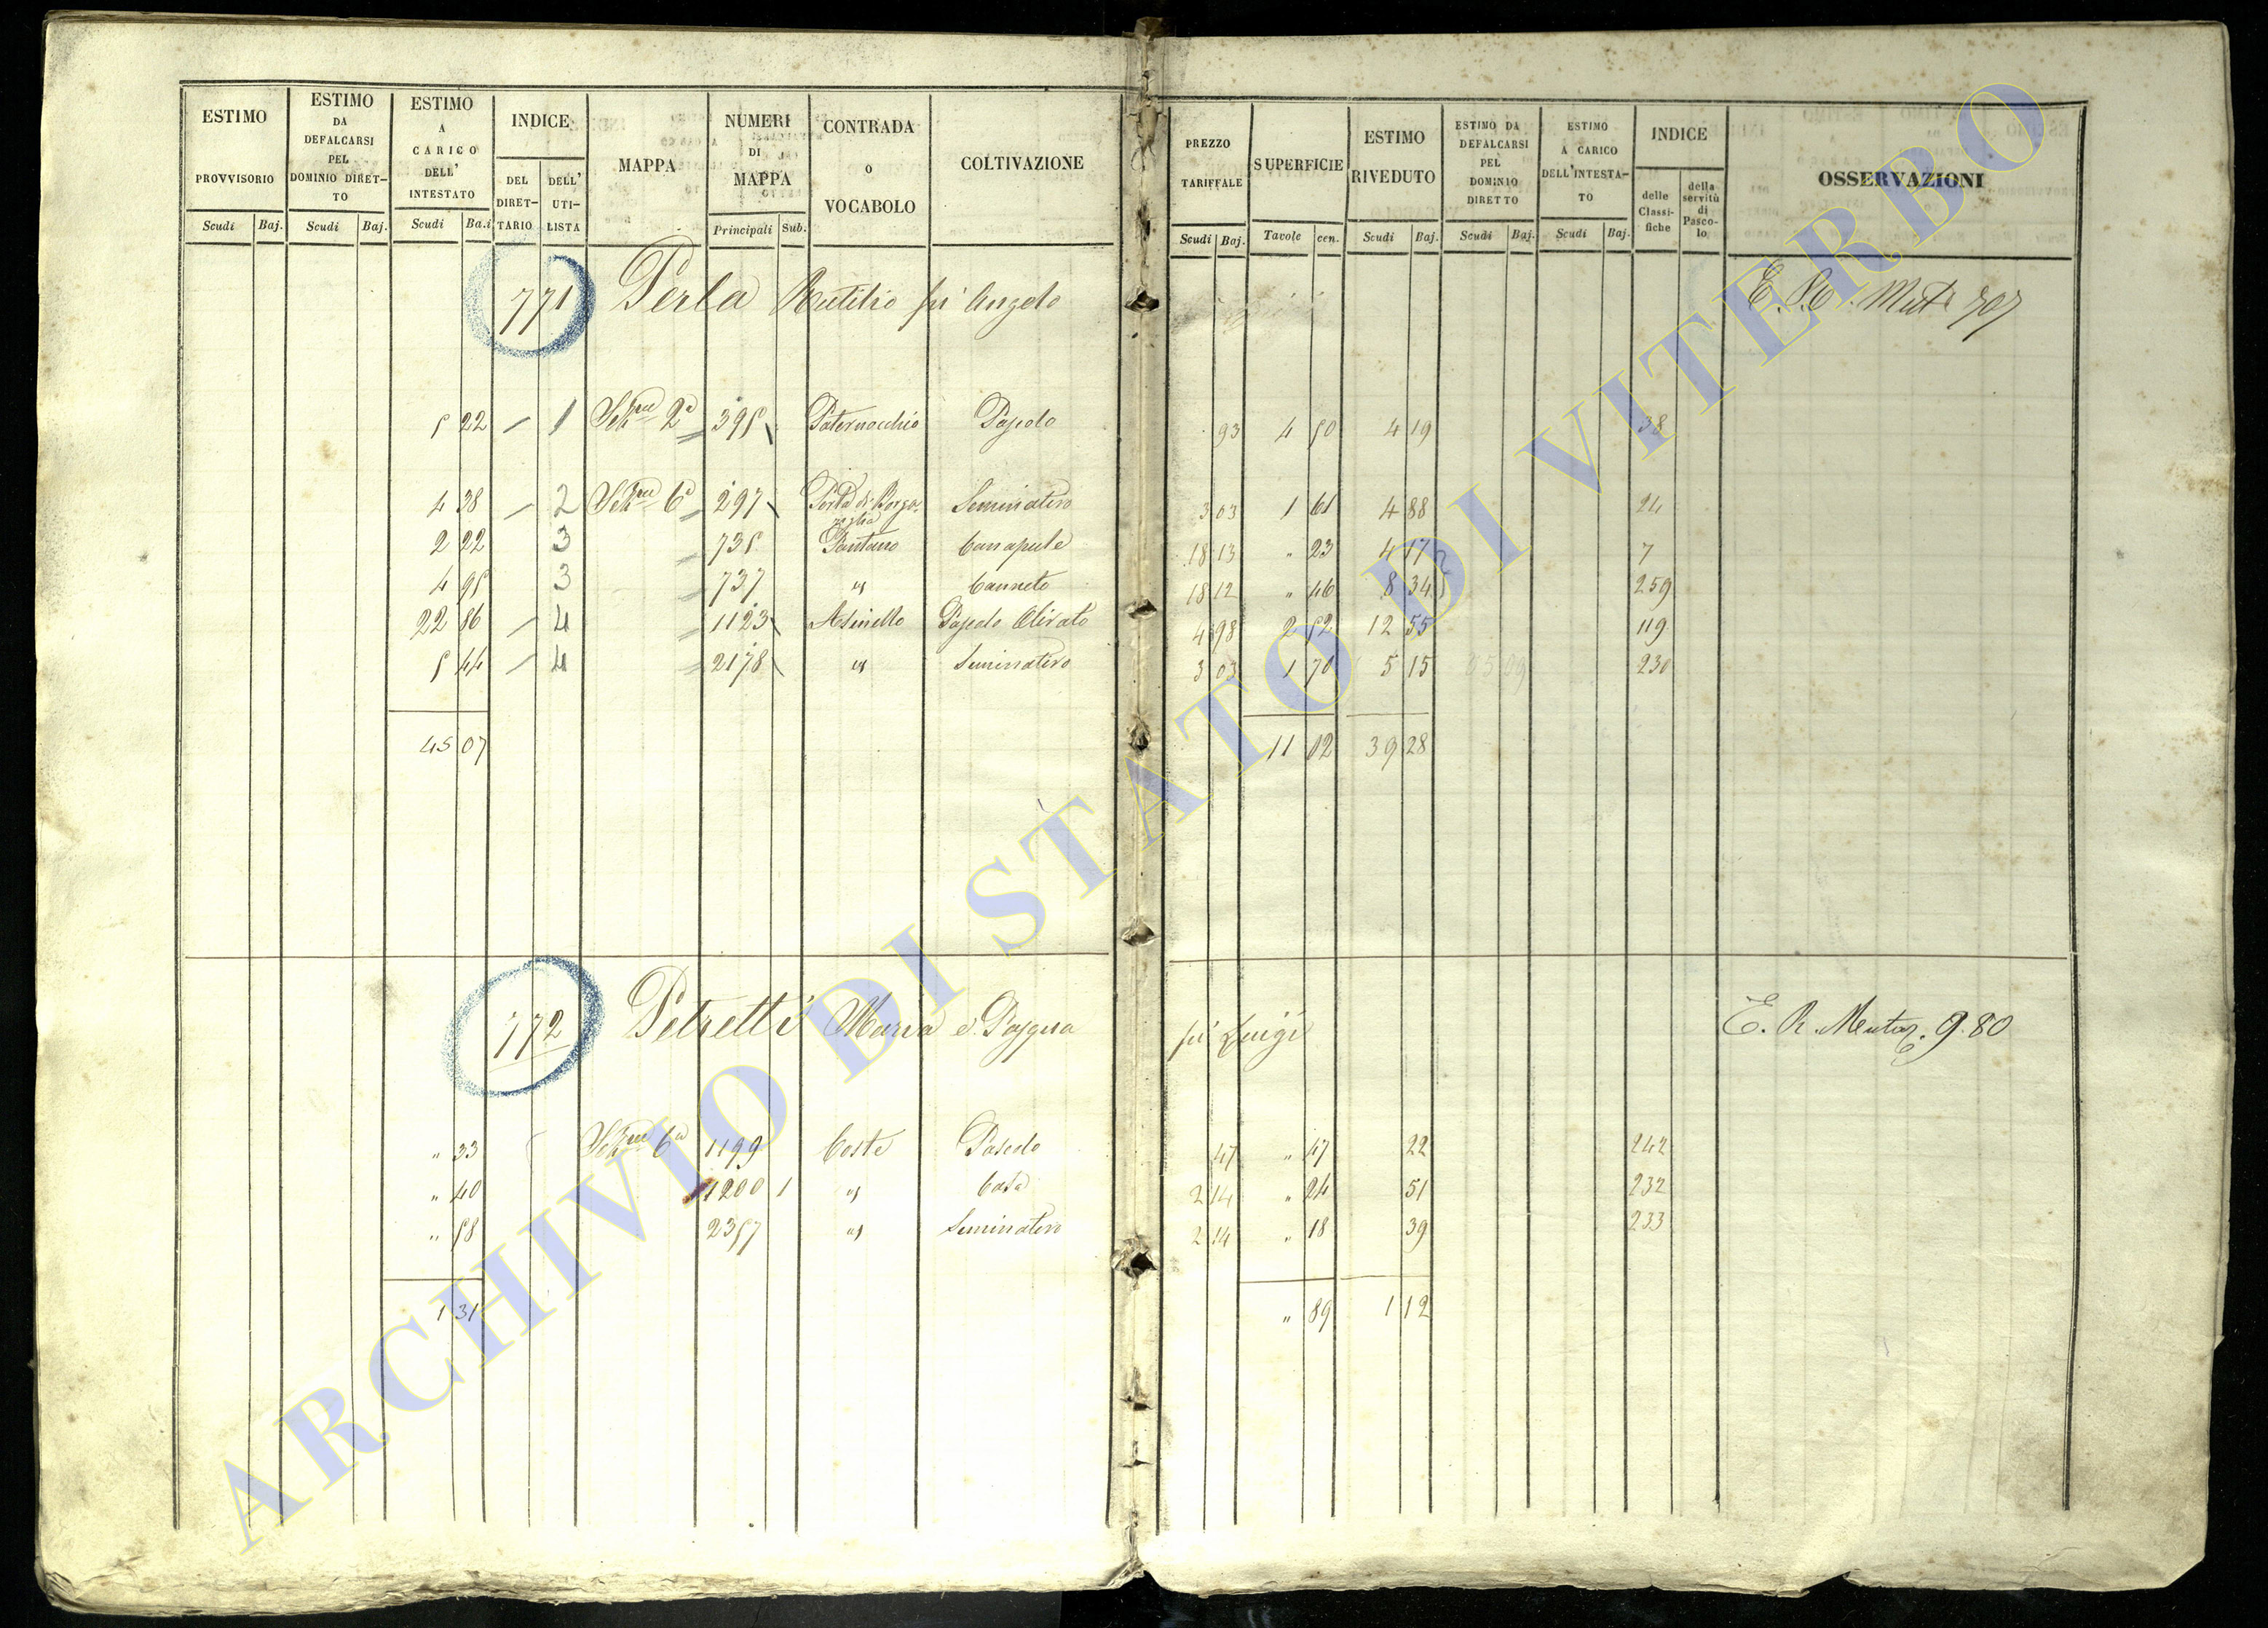 ESTIMO PROVVISORIO Scudi Baj.
ESTIMO DA DEFALCARSI PEL DOMINIO DIRET-TO Scudi Baj.
ESTIMO A CARICO DELL' INTESTATO Scudi Ba.i
INDICE DEL DIRET-TARIO DELL' UTI-LISTA
MAPPA
NUMERI DI MAPPA Principali Sub.
CONTRADA O VOCABOLO
COLTIVAZIONE
PREZZO TARIFFALE Scudi Baj.
SUPERFICIE Tavole cen.
ESTIMO RIVEDUTO Scudi Baj.
ESTIMO DA DEFALCARSI PEL DOMINIO DIRETTO Scudi Baj.
ESTIMO A CARICO DELL'INTESTA-TO Scudi Baj.
INDICE delle Classi-fiche della servitù di Pasco-lo
OSSERVAZIONI
771 Perla Rutilio fu Angelo
5 22 – 1 Sezne 2a 395 Paternocchio Pascolo 93 4 50 4 19 38
4 38 – 2 Sezne 6a 297 Seminativo 3 03 1 61 4 88 24
2 22 3 735 Pantano Canapule 18 13 " 23 4 17 7
4 95 3 737 " Canneto 18 12 " 46 8 34 259
22 86 – 4 1123 Asinello Pascolo Olivato 4 98 2 52 12 55 119
5 44 – 4 2178 " Seminativo 3 03 1 70 5 15 230
45 07 11 02 39 28
772 Petretti Maria e Pasqua fu Luigi E. R. Mutaz. 980
" 33 Sezne 6a 1199 Coste Pascolo 47 " 47 22 242
" 40 1200 1 " Casa 2 14 " 24 51 232
" 58 2357 " Seminativo 2 14 " 18 39 233
1 31 " 89 1 12
ARCHIVIO DI STATO DI VITERBO